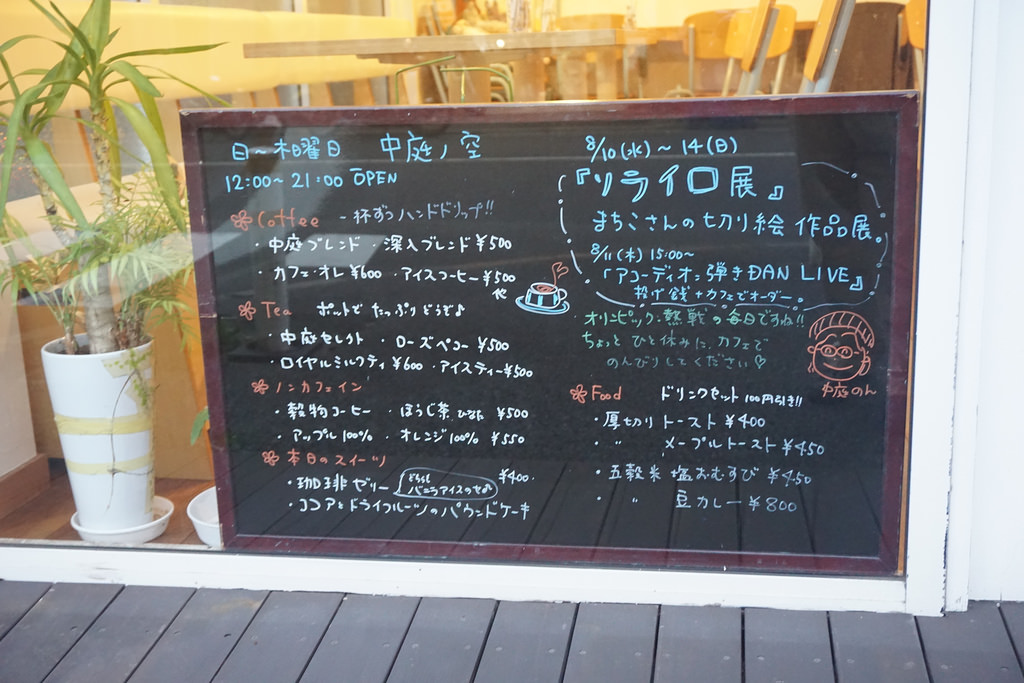 日〜木曜日 中庭ノ空
12:00~21:00 OPEN
Coffee 一杯ずつハンドドリップ!!
・中庭ブレンド ・深入ブレンド ¥500
・カフェ・オレ ¥600 ・アイスコーヒー ¥500
他
Tea ポットで たっぷりどうぞ♪
・中庭セレクト ・ローズペコー ¥500
・ロイヤルミルクティ ¥600 ・アイスティー ¥500
ノンカフェイン
・穀物コーヒー ・ほうじ茶 ¥500
・アップル100% ・オレンジ100% ¥550
本日のスイーツ
・珈琲ゼリー どちらも バニラアイスのせ♪ ¥400
・ココアとドライフルーツのパウンドケーキ
8/10(水)〜14(日)
『ソライロ展』
まちこさんの切り絵 作品展。
8/11(木) 15:00~
「アコーディオン弾きDAN LIVE』
投げ銭+カフェでオーダー。
オリンピック・熱戦の毎日ですね!!
ちょっと ひと休みに、カフェで
のんびりしてください♡
中庭のん
Food ドリンクセット 100円引き!!
・厚切り トースト ¥400
・〃 メープルトースト ¥450
・五穀米 塩おむすび ¥450
・〃 豆カレー ¥800